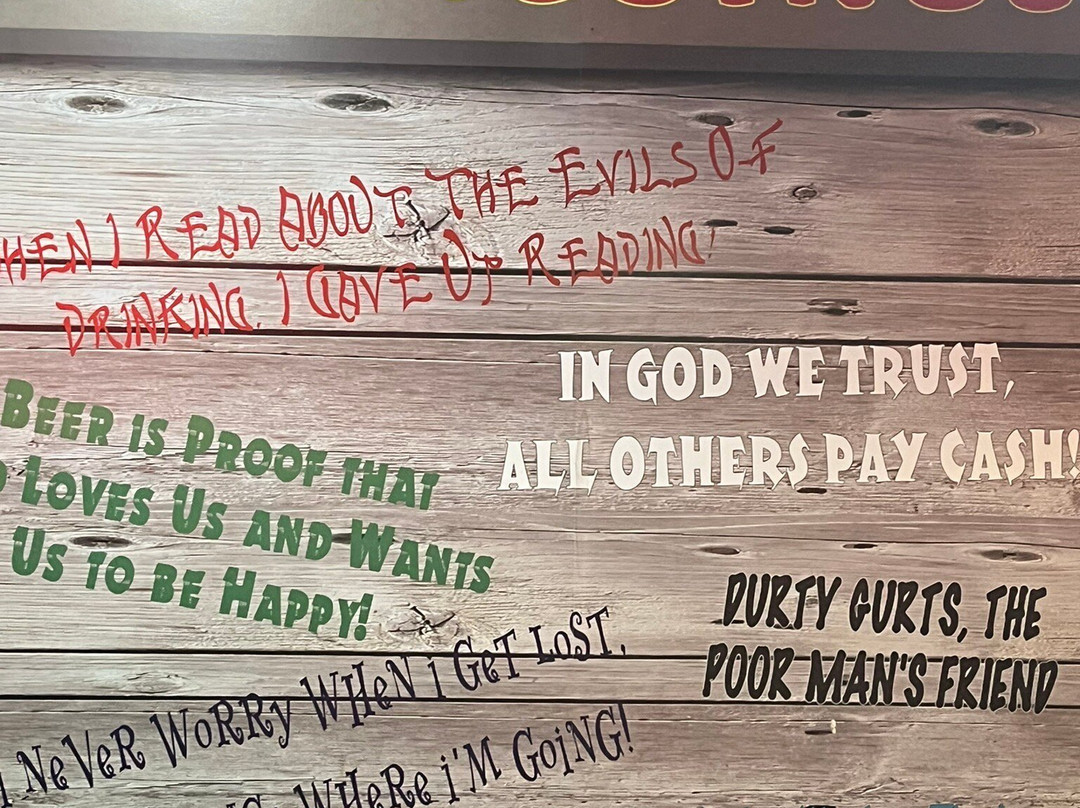 HEN I READ ABOUT THE EVILS OF
DRINKING, I GAVE UP READING!
IN GOD WE TRUST,
ALL OTHERS PAY CASH!
BEER IS PROOF THAT
LOVES US AND WANTS
US TO BE HAPPY!
DURTY GURTS, THE
POOR MAN'S FRIEND
I NeVeR WoRRy WHeN i GeT LoST,
WHeRe i'M GoiNG!